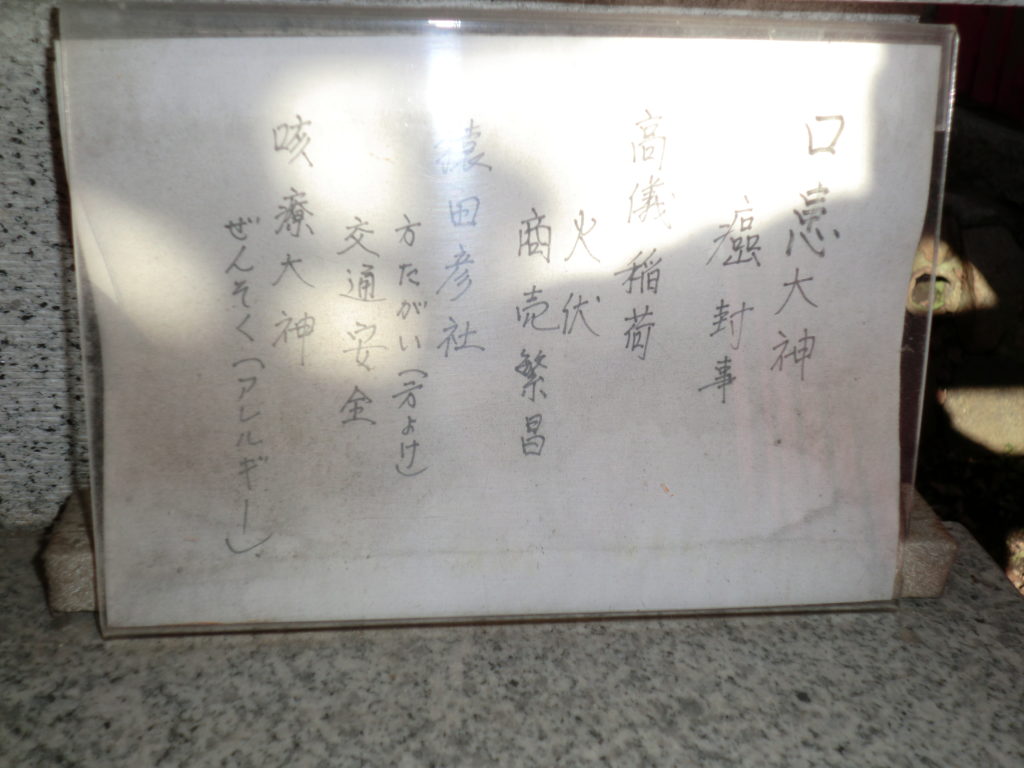 口患大神
癌封事
高儀稲荷
火伏
商売繁昌
猿田彦社
方たがい(方よけ)
交通安全
咳療大神
ぜんそく(アレルギー)